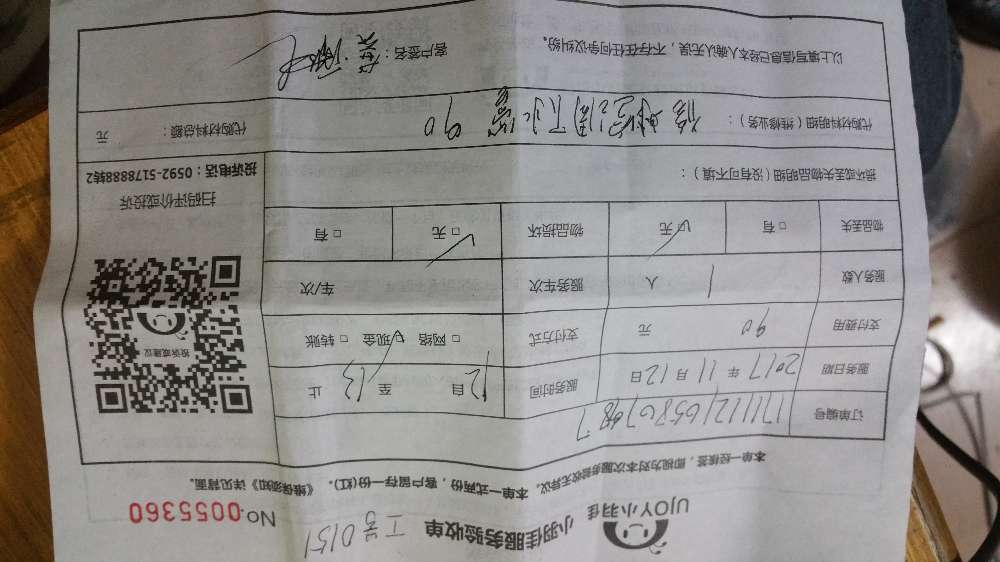 UJOY小羽佳 小羽佳服务验收单 工号0151 NO.0055360
本单一经核签，即视为对本次服务验收无异议。本单一式两份，客户留存一份(红)。《维保须知》详见背面。
订单编号
服务日期 2017年11月12日 服务时间 12自 至13 止
支付费用 90 元 支付方式 □网络 □现金 □转账
服务人数 1 人 服务车次 车/次
物品丢失 □有 □无 物品损坏 □无 □有
投诉或建议
扫码评价或投诉
投诉电话：0592-5178888转2
损坏或丢失物品明细（没有可不填）：
代购材料明细（维修业务）： 修 空调下水管 90 代购材料总额： 元
以上填写信息已经本人确认无误，不存在任何争议纠纷。 客户签名：